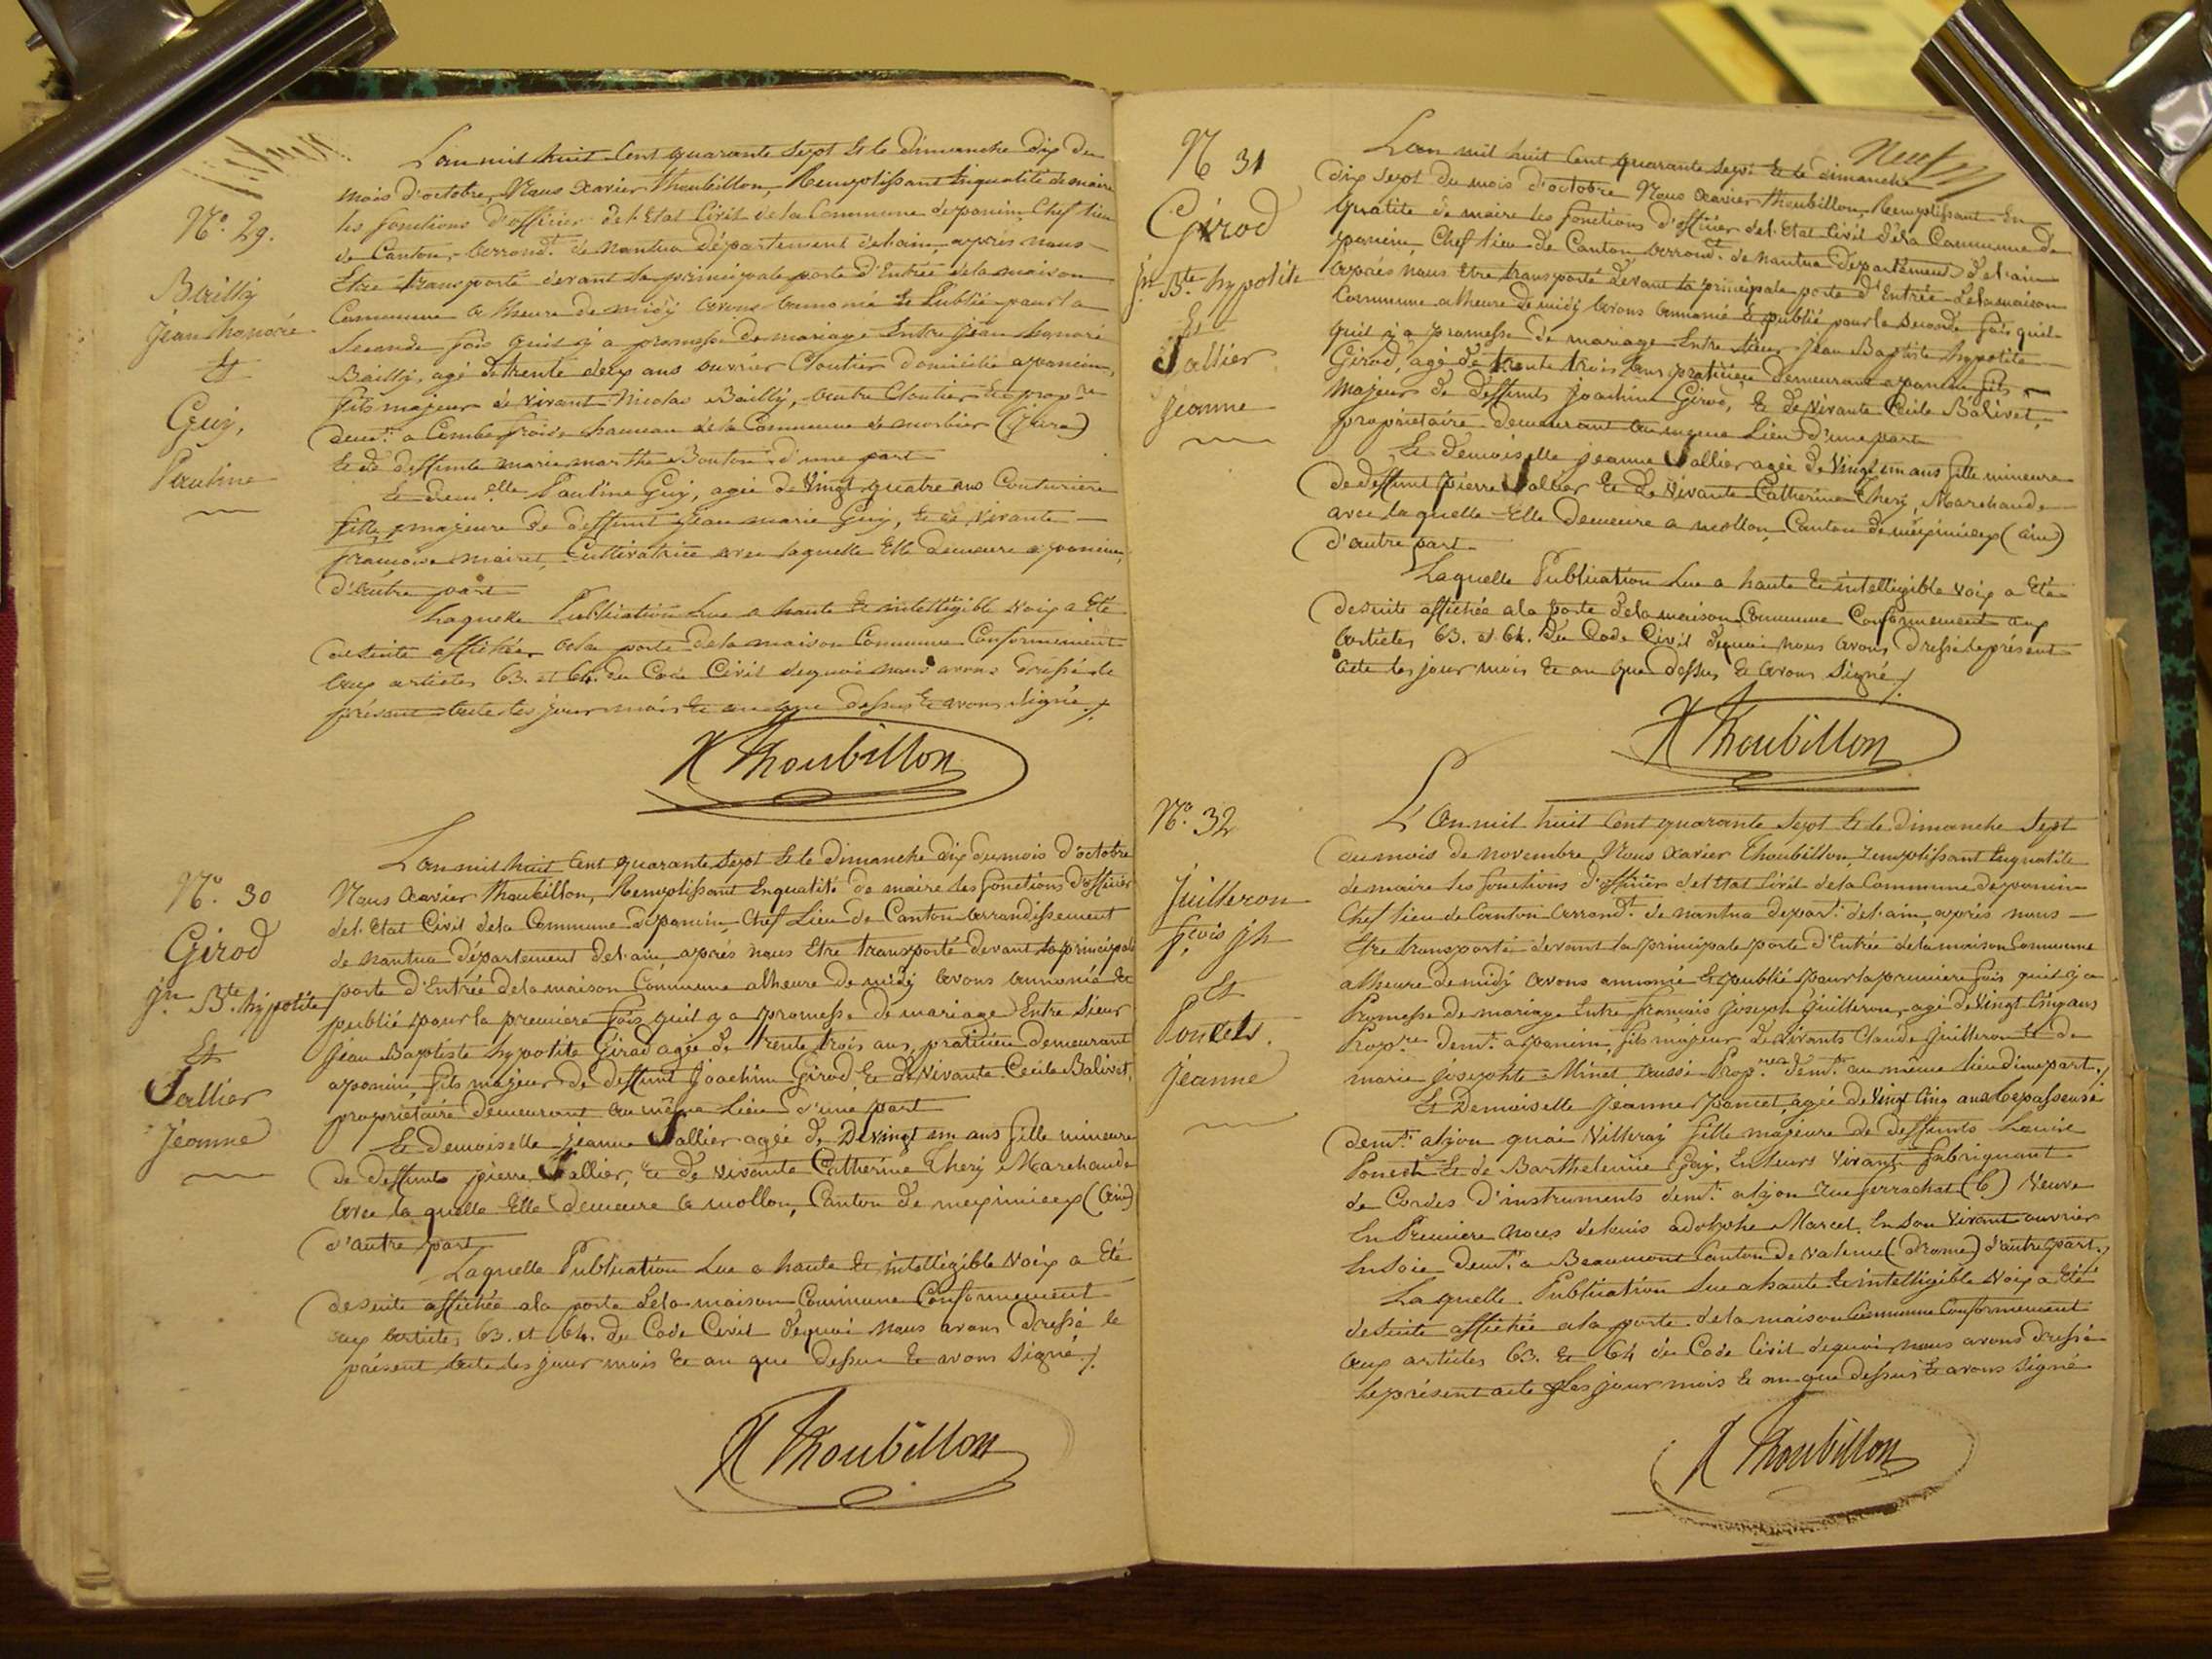 N.° 29.
Bailly
jean honoré
Et
Guy,
Pauline
L'an mil huit Cent quarante Sept Et le dimanche dix du
mois d'octobre, Nous Xavier Thoubillon, Remplissant Enqualité de maire
les fonctions d'officier de l'Etat Civil de la Commune deponcin Chef lieu
de Canton, arrond.t de nantua Département delain, après nous
Etre transporté devant la principale porte d'Entrée de la maison
Commune a lheure de midy avons annoncé Et Publié pour la
Seconde fois quil y a promesse de mariage Entre jean honoré
Bailly, agé de trente deux ans ouvrier Cloutier domicilié aponcin,
fils majeur de vivant Nicolas Bailly, autre Cloutier Et prop.re
dem.t a Combe froide hameau de la Commune de morbier (jura)
Et de deffunte marie marthe Bouton d'une part
Et dem.elle Pauline Guy, agée de Vingt quatre ans Couturiere
fille majeure de deffunt jean marie Guy, Et de vivante
françoise mairet, Cultivatrice avec laquelle Elle demeure aponcin,
d'autre part
Laquelle Publication Lue a haute Et intelligible voix a Eté
desuite affichée ala porte dela maison Commune Conformement
aux articles 63. et 64. du Code Civil dequoi nous avons dressé le
présent acte les jour mois Et an que dessus Et avons signé./.
X Thoubillon
N.° 30
Girod
jn. Bte. hypolite
Et
Sallier
jeanne
L'an mil huit Cent quarante Sept Et le dimanche dix dumois d'octobre
Nous Xavier Thoubillon, Remplissant Enqualité de maire les fonctions d'officier
del. Etat Civil dela Commune deponcin, Chef Lieu de Canton arrondissement
de nantua département del.ain, après nous Etre transporté devant la principale
porte d'Entrée dela maison Commune alheure de midy avons annoncé Et
publié pour la premiere fois quil y a promesse de mariage Entre Sieur
jean Baptiste hypolite Girod agée de trente trois ans, praticien demeurant
aponcin, fils majeur de deffunt Joachim Girod, Et de Vivante Cécile Balivet,
propriétaire demeurant au même Lieu d'une part
Et demoiselle jeanne Sallier agée de Devingt un ans fille mineure
de deffunts pierre Sallier, Et de vivante Catherine Thery Marchande
avec la quelle Elle demeure a mollon, Canton de meximieux (ain)
d'autre part
Laquelle Publication Lue a haute Et intelligible Voix a Eté
desuite affichée ala porte dela maison Commune Conformement
aux articles 63. et 64. du Code Civil dequoi nous avons dressé le
présent acte les jour mois Et an que dessus Et avons signé./.
X Thoubillon
N 31
Girod
jn. Bte. hypolite
Et
Sallier
jeanne
L'an mil huit Cent quarante Sept Et le dimanche
dix Sept du mois d'octobre Nous Xavier Thoubillon, Remplissant En
qualité de maire les fonctions d'officier del. Etat Civil dela Commune de
poncin, Chef Lieu de Canton, arrond.t de nantua département del.ain
après nous Etre transporté devant la principale porte d'Entrée dela maison
Commune alheure de midy avons annoncé Et publié pour la Seconde fois quil
quil y a promesse de mariage Entre Sieur jean Baptiste hypolite
Girod, agé de trente trois ans praticien demeurant aponcin fils
majeur de deffunts Joachim Girod, Et de Vivante Cécile Balivet,
propriétaire demeurant au meme Lieu d'une part
Et demoiselle jeanne Sallier agée de Vingt un ans fille mineure
de deffunt pierre Sallier Et de Vivante Catherine Thery, Marchande
avec laquelle Elle demeure a mollon Canton de meximieux (ain)
d'autre part
Laquelle Publication Lue a haute Et intelligible voix a Eté
desuite affichée ala porte dela maison Commune Conformement aux
articles 63. et 64. du Code Civil dequoi nous avons dressé le présent
acte les jour mois Et an que dessus Et avons signé./.
X Thoubillon
N.° 32
Juilleron
f.çois jh
Et
Poncet
jeanne
L'an mil huit Cent quarante Sept Et le dimanche Sept
du mois de novembre Nous Xavier Thoubillon, remplissant Enqualité
de maire les fonctions d'officier del Etat Civil dela Commune deponcin
Chef lieu de Canton arrond.t de nantua depar.t del.ain, après nous
Etre transporté devant la principale porte d'Entrée dela maison Commune
alheure de midy avons annoncé Et publié pour la premiere fois quil y a
Promesse de mariage Entre françois Joseph Juilleron, agé de Vingt Cinq ans
Prop.re dem.t aponcin, fils majeur de vivants Claude Juilleron Et de
marie josephte Minet aussi Prop.res dem.t au même lieu d'une part./.
Et Demoiselle jeanne poncet, agée de Vingt Cinq ans Repasseuse
dem.t alyon quai Villeroy fille majeure de deffunts Louise
Poncet Et de Barthelemie Guy, En leurs vivants fabriquant
de Cordes d'instruments dem.t alyon rue ferrachat (6) Veuve
En Premiere noces delouis adolphe Marcel, En Son Vivant ouvrier
En Soie dem.t a Beaumont Canton de Valence (drome) d'autre part./.
La quelle Publication Lue a haute Et intelligible Voix a Eté
desuite affichée ala porte dela maison Commune Conformement
aux articles 63. Et 64 du Code Civil dequoi nous avons dressé
le présent acte Les jour mois Et an que dessus Et avons signé
X Thoubillon